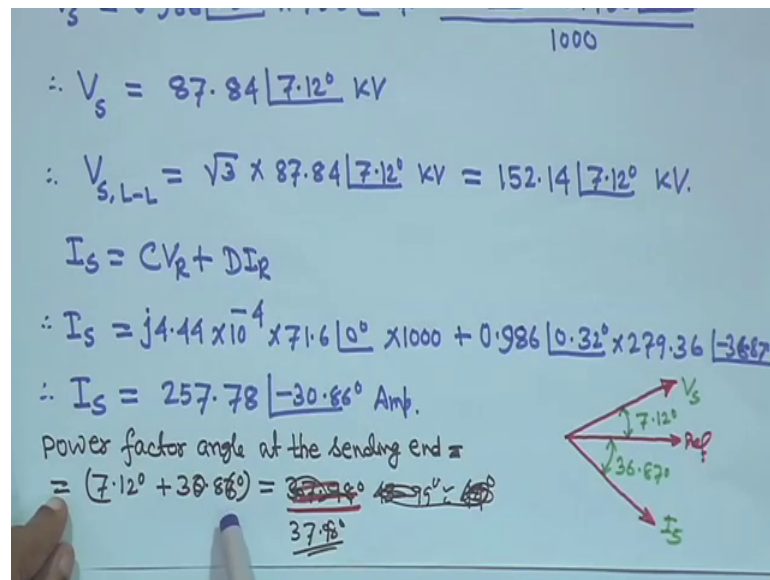 1000
∴ V_S = 87.84 ∠7.12° KV
∴ V_S,L-L = √3 × 87.84 ∠7.12° KV = 152.14 ∠7.12° KV.
I_S = CV_R + DI_R
∴ I_S = j4.44×10^-4 × 71.6 ∠0° ×1000 + 0.986 ∠0.32° × 279.36 ∠-36.87°
∴ I_S = 257.78 ∠-30.86° Amp.
Power factor angle at the sending end =
= (7.12° + 30.86°) =
37.98°
V_S
7.12°
Ref
36.87°
I_S